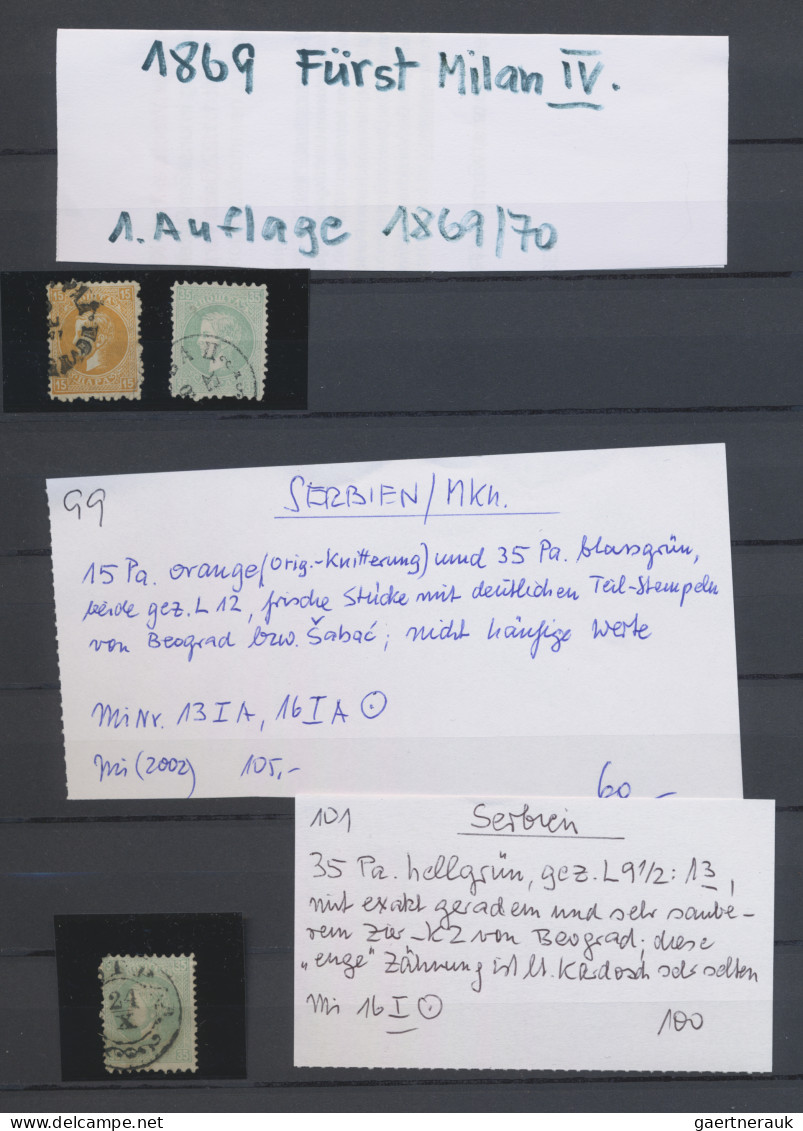 1869 Fürst Milan IV.
1. Auflage 1869/70
15 15
ПАРА
15 15
35 35
99
SERBIEN / MKn.
15 Pa. orange (Orig.-Knitterung) und 35 Pa. blassgrün,
beide gez. L 12, frische Stücke mit deutlichen Teil-Stempeln
von Beograd bzw. Šabač; nicht häufige Werte
MiNr. 13 I A, 16 I A ⊙
Mi (2002) 105,-
60 -
101
Serbien
35 Pa. hellgrün, gez. L 9 1/2 : 13,
mit exakt geradem und sehr saube-
rem Zier-K2 von Beograd; diese
„enge" Zähnung ist lt. Kardosch sehr selten
Mi 16 I ⊙
100
24
X
35
www.delcampe.net
gaertnerauk